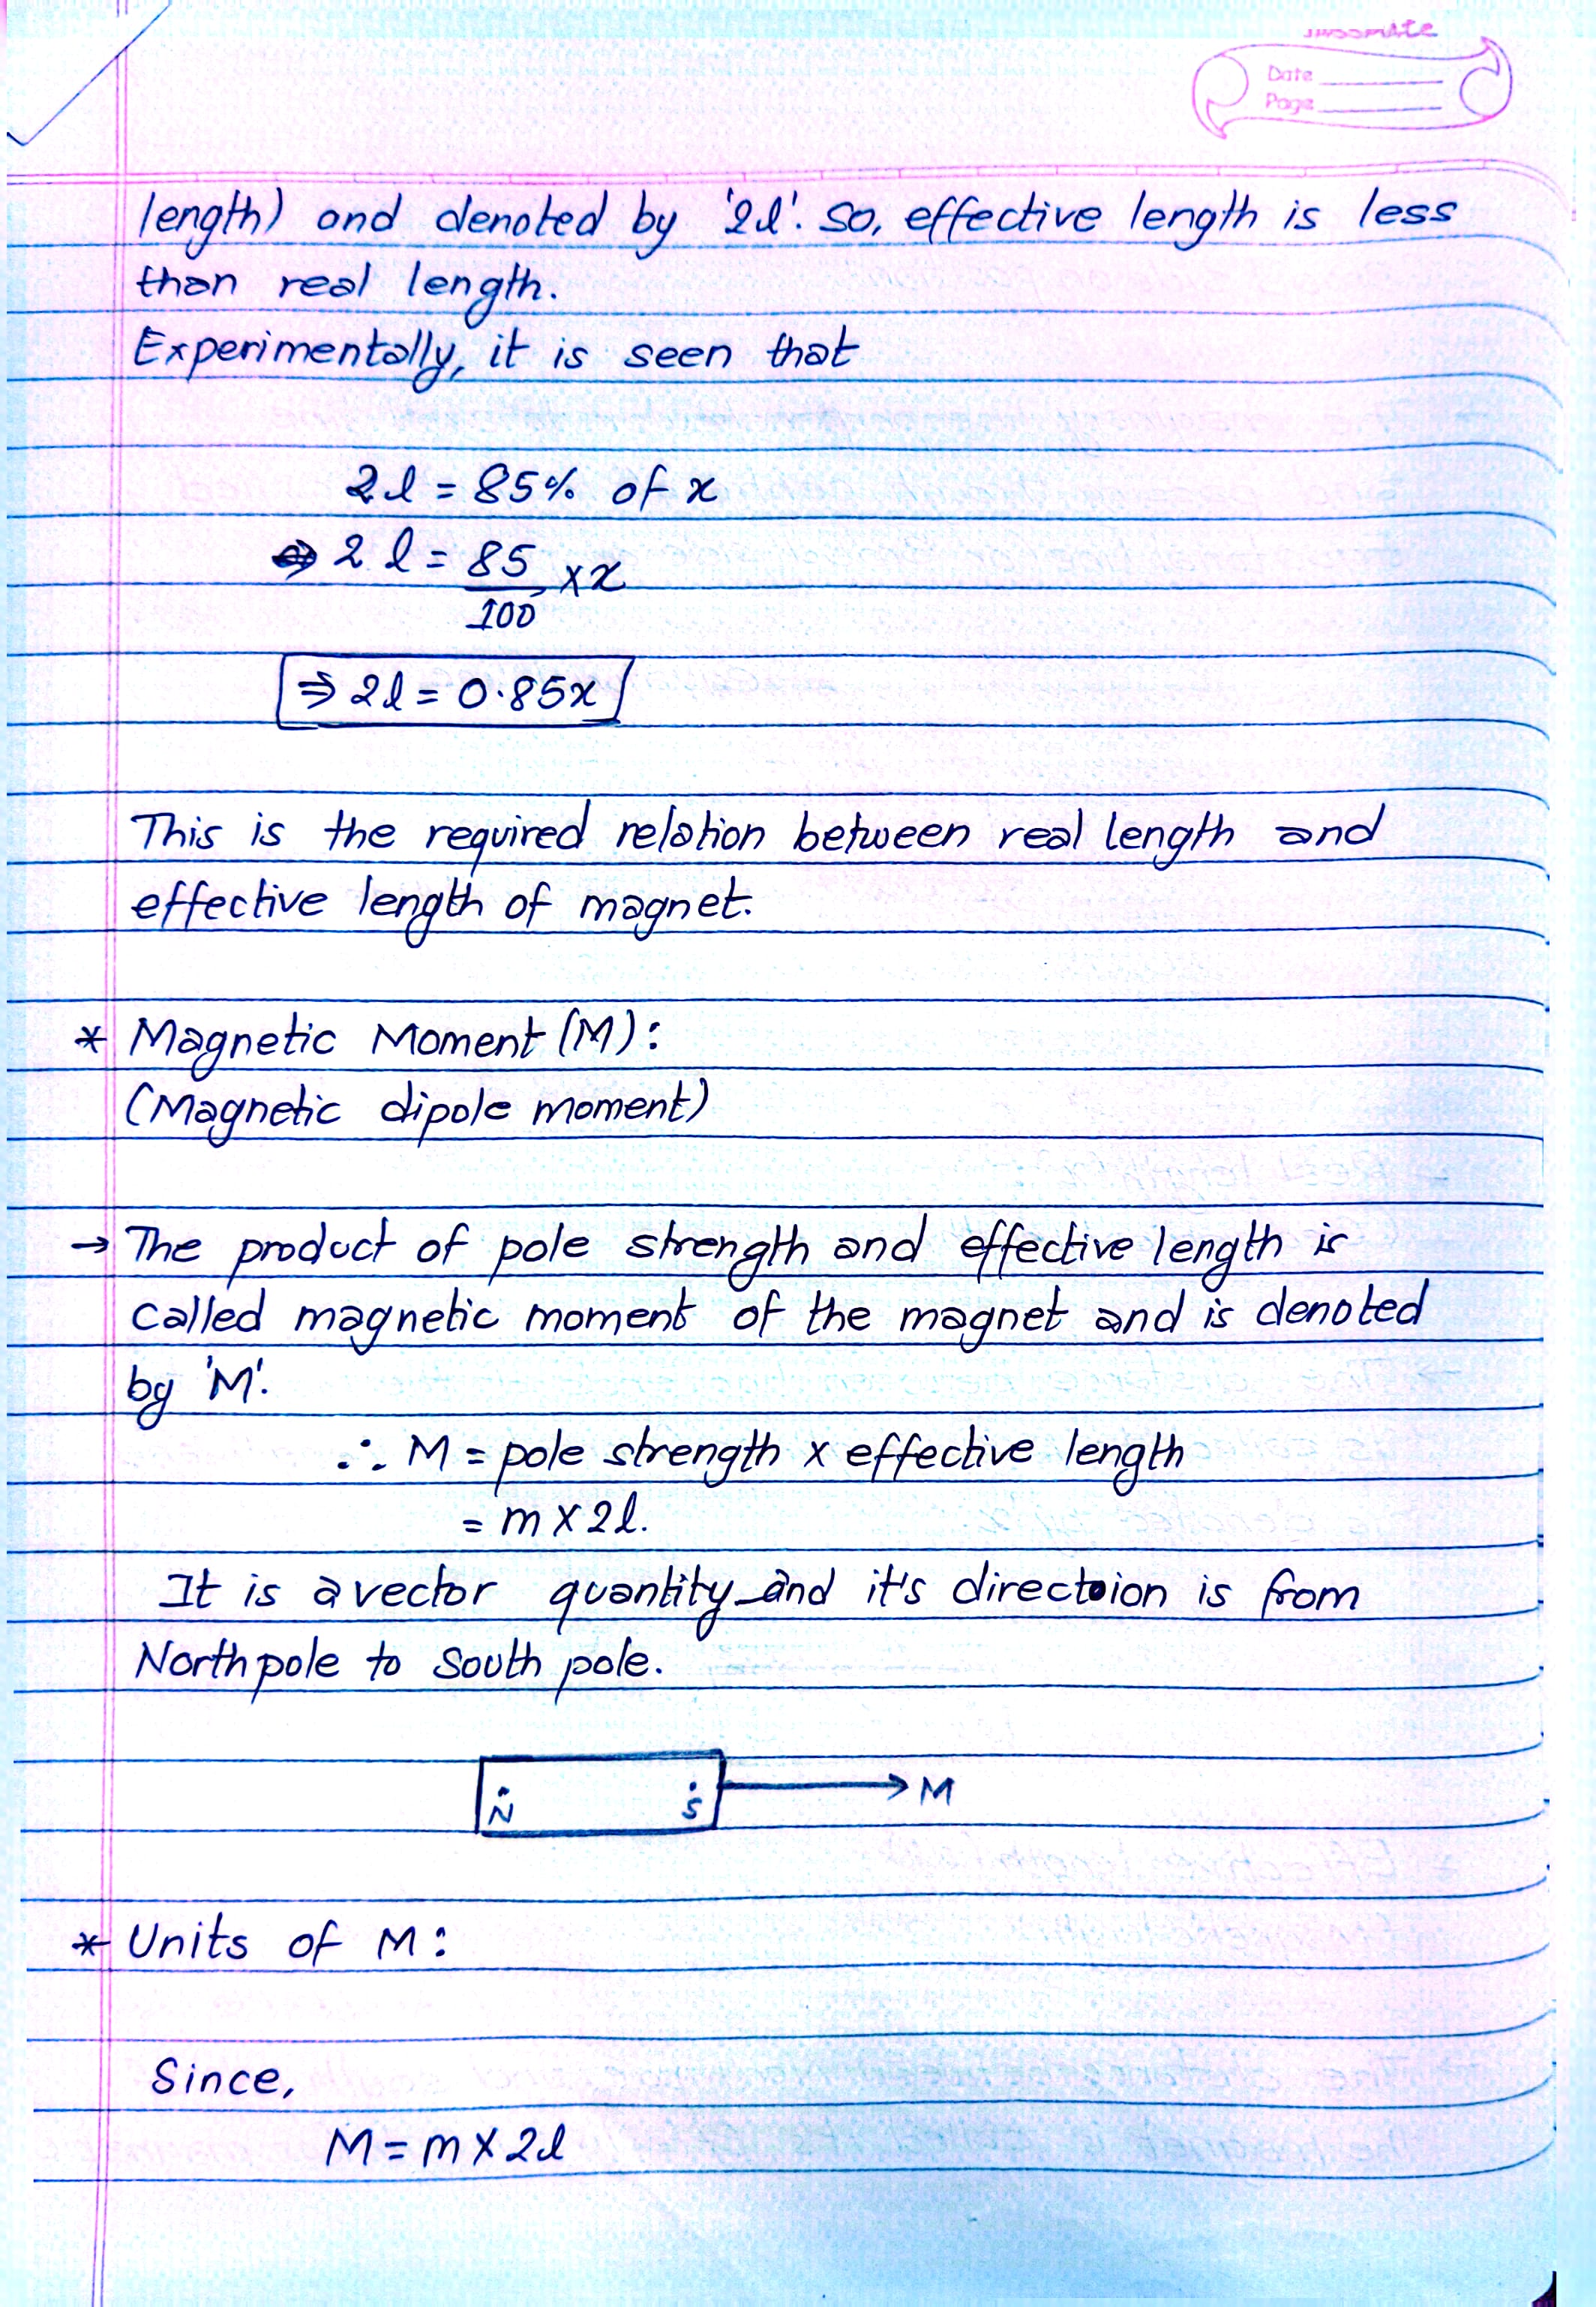 classmate
Date
Page
length) and denoted by '2l'. So, effective length is less
than real length.
Experimentally, it is seen that
2l = 85% of x
⇒ 2l = 85/100 × x
⇒ 2l = 0.85x
This is the required relation between real length and
effective length of magnet.
* Magnetic Moment (M):
(Magnetic dipole moment)
→ The product of pole strength and effective length is
called magnetic moment of the magnet and is denoted
by 'M'.
∴ M = pole strength x effective length
= m × 2l.
It is a vector quantity and it's direction is from
North pole to South pole.
N S → M
* Units of M:
Since,
M = m × 2l